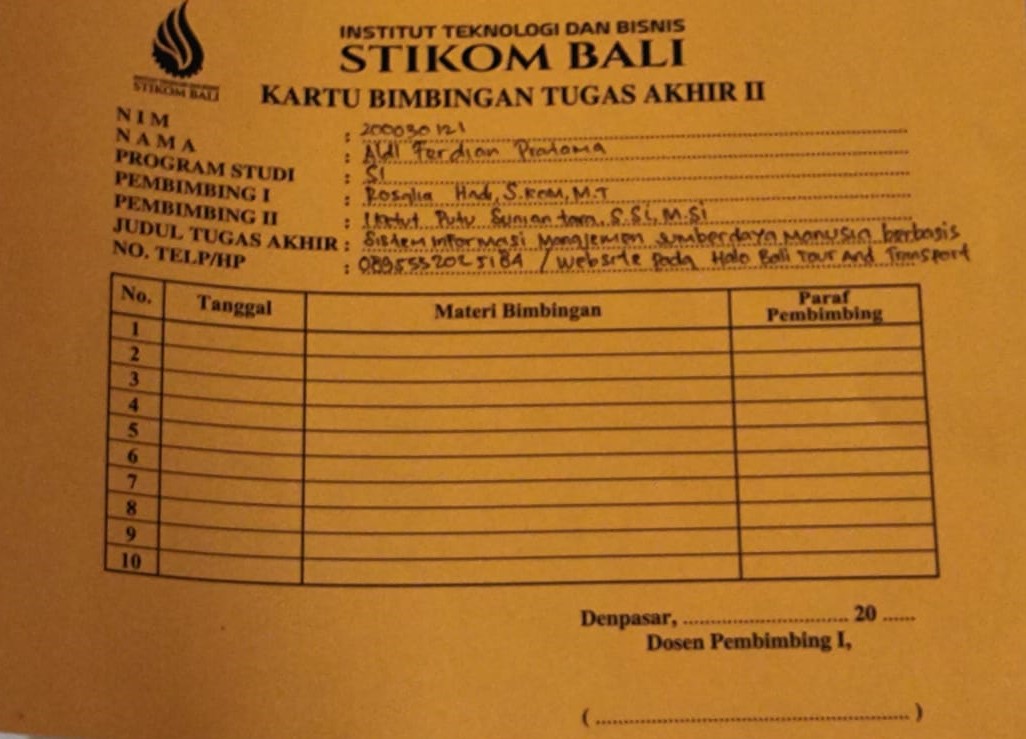 INSTITUT TEKNOLOGI DAN BISNIS
STIKOM BALI
STIKOM BALI
KARTU BIMBINGAN TUGAS AKHIR II
NIM : 200030121
NAMA : Aldi Ferdian Pratama
PROGRAM STUDI : SI
PEMBIMBING I : Rosalia Hadi, S.Kom, M.T
PEMBIMBING II : I Ketut Putu Suniantara, S.Si, M.Si
JUDUL TUGAS AKHIR : Sistem Informasi Manajemen Sumberdaya Manusia berbasis
NO. TELP/HP : 0895332025184 / Website Pada Halo Bali Tour And Transport
No. Tanggal Materi Bimbingan Paraf Pembimbing
1
2
3
4
5
6
7
8
9
10
Denpasar, .............................. 20 ......
Dosen Pembimbing I,
( ........................................................ )